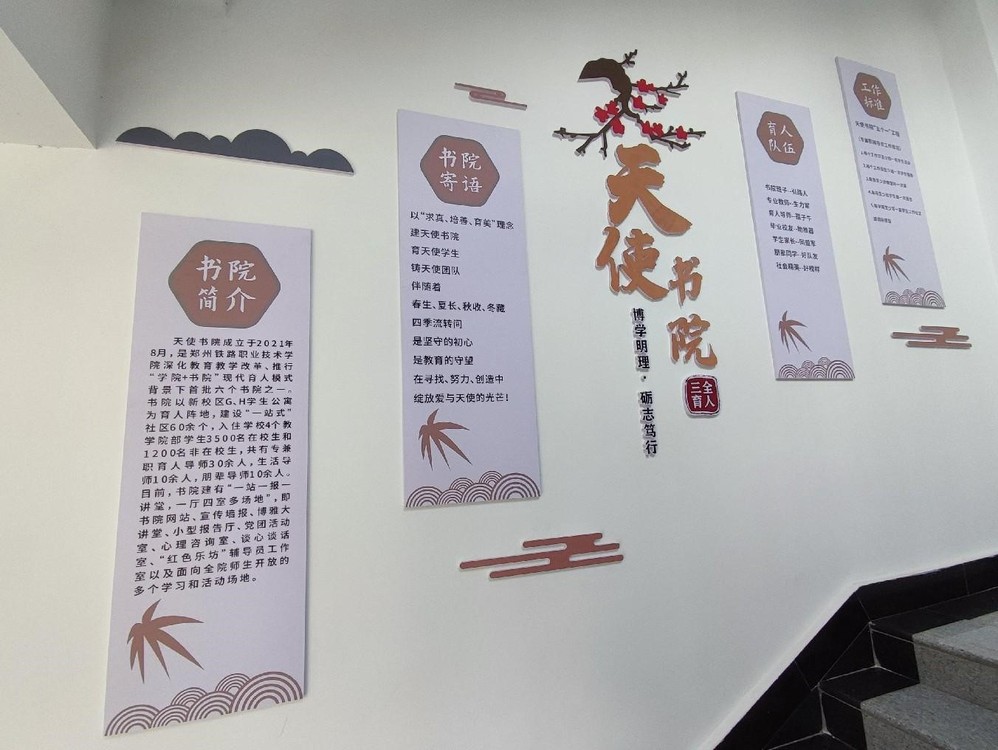 书院
简介
天使书院成立于2021年
8月,是郑州铁路职业技术学
院深化教育教学改革、推行
“学院+书院”现代育人模式
背景下首批六个书院之一。
书院以新校区G、H学生公寓
为育人阵地,建设“一站式”
社区60余个,入住学校4个教
学院部学生3500名在校生和
1200名非在校生,共有专兼
职育人导师30余人,生活导
师10余人,朋辈导师10余人。
目前,书院建有“一站一报一
讲堂,一厅四室多场地”,即
书院网站、宣传墙报、博雅大
讲堂、小型报告厅、党团活动
室、心理咨询室、谈心谈话
室、“红色乐坊”辅导员工作
室以及面向全院师生开放的
多个学习和活动场地。
书院
寄语
以“求真、培善、育美”理念
建天使书院
育天使学生
铸天使团队
伴随着
春生、夏长、秋收、冬藏
四季流转间
是坚守的初心
是教育的守望
在寻找、努力、创造中
绽放爱与天使的光芒!
天使书院
博学明理·砺志笃行
三全
育人
育人
队伍
书院班子--引路人
专业教师--生力军
育人导师--孺子牛
毕业校友--助推器
学生家长--同盟军
朋辈同学--好队友
社会精英--好榜样
工作
标准
天使书院“五个一”工程